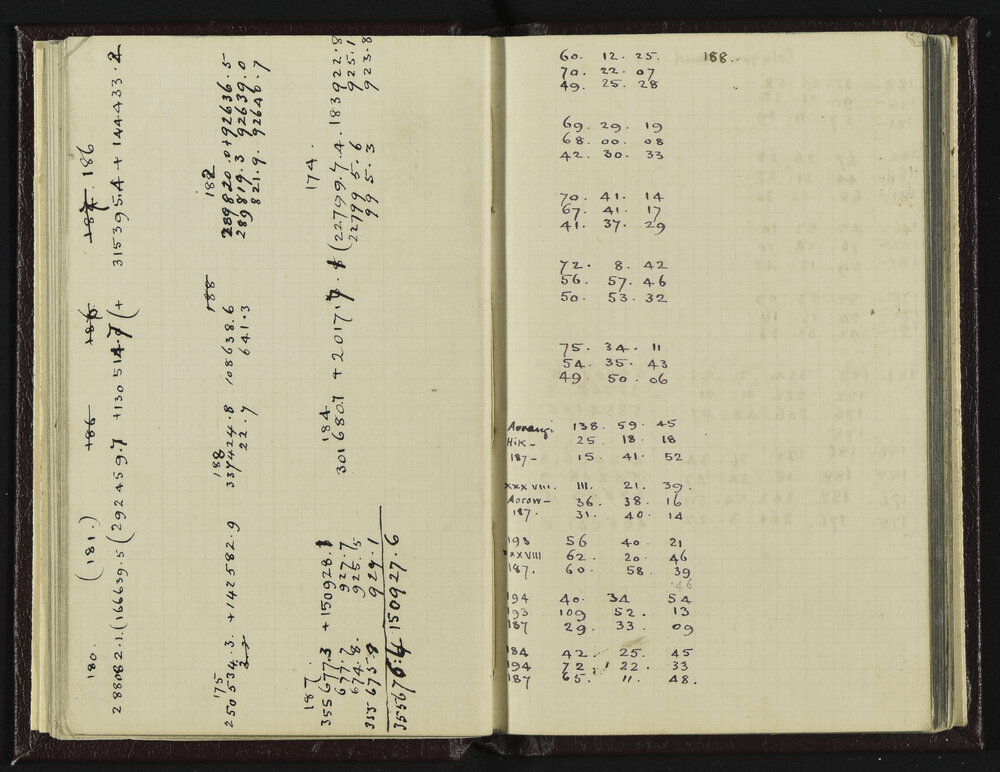 180. (181.) 186 186 187. 186
288082.1. (166639.5 (292459.7 +130514.7 (+ 315395.4 + 144433.2
175 188 188 182
250534.3. +142582.9 337424.8 108638.6 289820.0+92636.5
22.7 641.3 289819.3 92639.0
821.9. 92646.7
187 184 174.
355677.3 +150928.1 301680.1 +20171 (22799.7.4. 183922.8
677.7 927.7 22799 5.6 925.1
674.8. 925.5 99 5.3 923.8
355675.9 929.1
355676.4 150927.6
60. 12. 25. 188.
70. 22. 07
49. 25. 28
69. 29. 19
68. 00. 08
42. 30. 33
70. 41. 14
67. 41. 17
41. 37. 29
72. 8. 42
56. 57. 46
50. 53. 32
75. 34. 11
54. 35. 43
49. 50. 06
138. 59. 45
Hik- 25. 18. 18
187- 15. 41. 52
xxxviii. 111. 21. 39.
Aorow- 36. 38. 16
187. 31. 40. 14
193 56 40. 21
xxviii 62. 20. 46
187. 60. 58. 39
46
194 40. 34 54
193 109 52. 13
187 29. 33. 09
184 42. 25. 45
194 72. 22. 33
187 65. 11. 48.